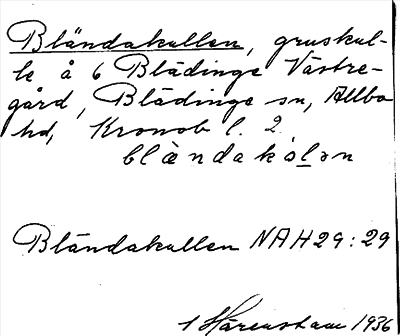 Bländakullen, gruskul-
le å 6 Blädinge Västre-
gård, Blädinge sn, Allbo
hd, Kronob l. 2.
blàndakólən
Bländakullen NAH29:29
1 Härenstam 1936